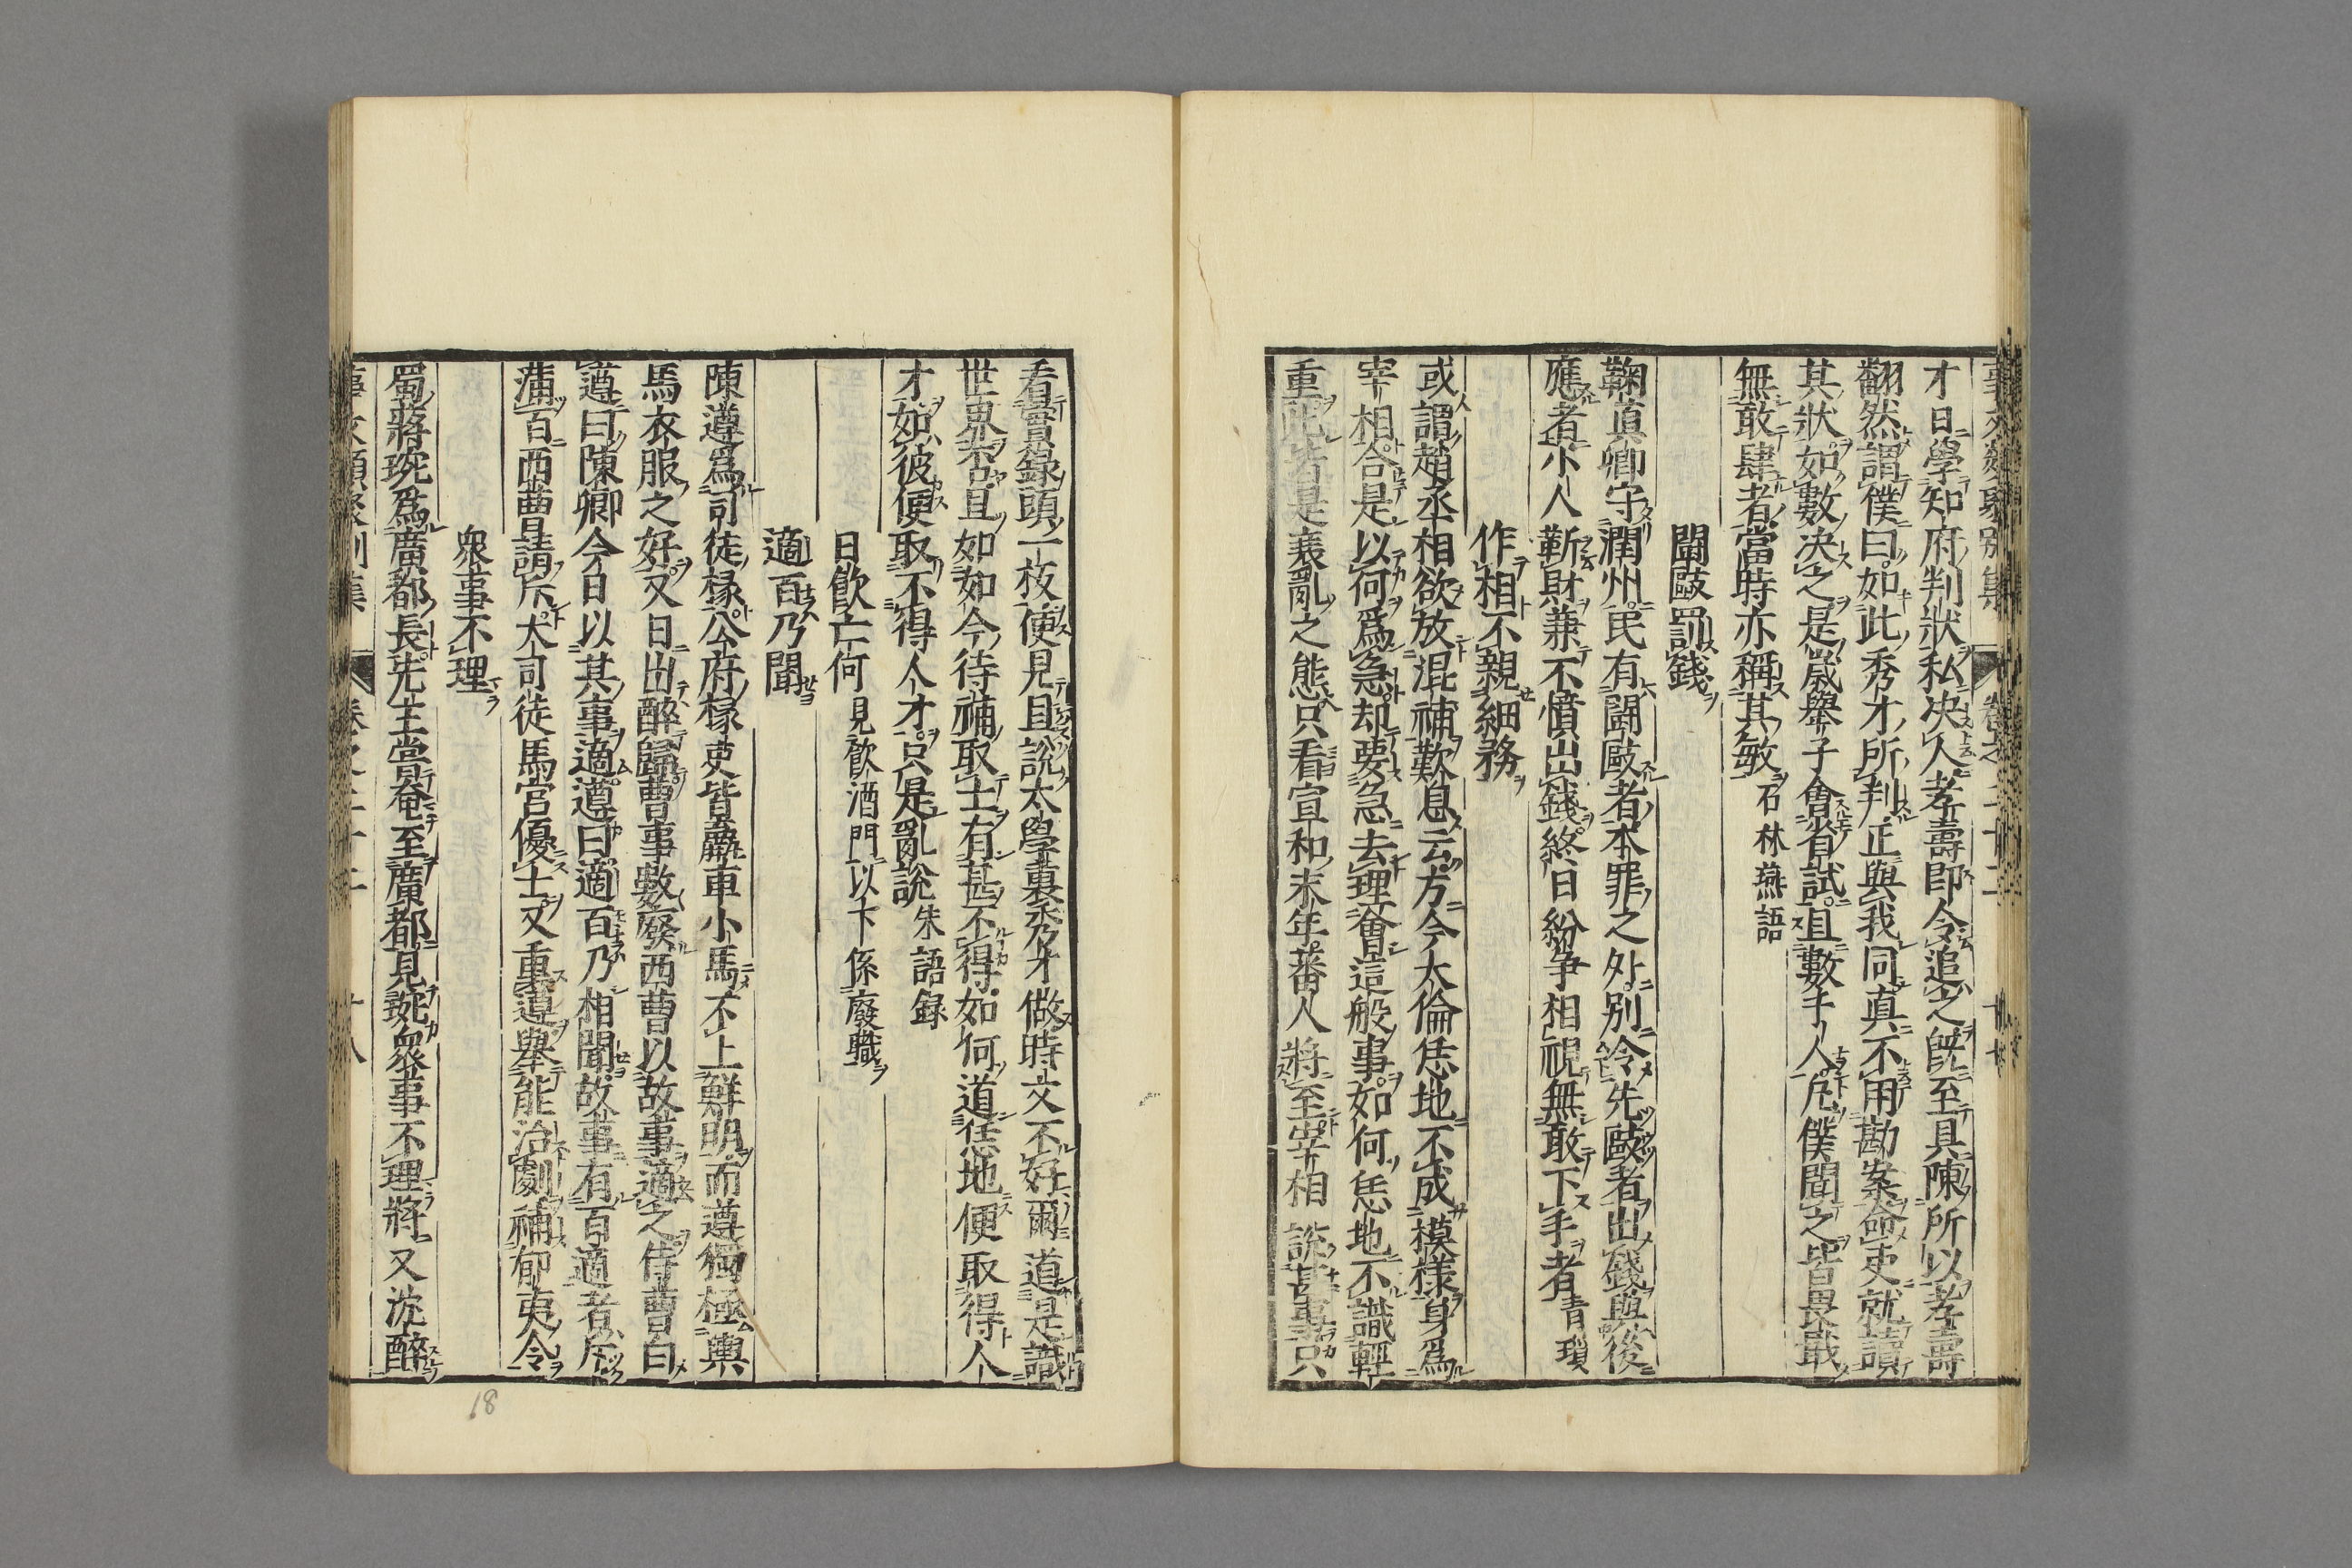 才日學知府判狀私決人孝壽即令追之既至具陳所以孝壽
翻然謂僕曰如此秀才所判正與我同真不用勘案命吏就讀
其狀如數決之是歲舉子會省試且數千人凡僕聞之皆畏戢
無敢肆者當時亦稱其敏石林燕語
鬬毆罰錢
鞠真卿守潤州民有鬬毆者本罪之外別令先毆者出錢與後
應者小人靳財兼不憤出錢終日紛争相視無敢下手者青瑣
作相不親細務
或謂趙丞相欲放混補歎息云方今大倫恁地不成模樣身爲
宰相合是以何爲急却要急去理會這般事如何恁地不識輕
重此皆是衰亂之態只看宣和末年蕃人將至宰相說甚事只
看實録頭一板便見且說太學裏秀才做時文不好爾道是識
世界否且如如今待補取士有甚不得如何道恁地便取得人
才如彼便取不得人才只是亂說朱語録
日飲亡何見飲酒門以下係廢職
適百乃聞
陳遵爲司徒椽公府椽吏皆羸車小馬不上鮮明而遵獨極輿
馬衣服之好又日出醉歸曹事數廢西曹以故事適之侍曹白
遵曰陳卿今日以其事適遵曰適百乃相聞故事有百適者斥
蒲百西曹請斥大司徒馬宮優士又重遵舉能治劇補郁夷令
衆事不理
蜀蔣琬爲廣都長先主嘗奄至廣都見琬衆事不理將又沈醉
事文類聚別集 卷之二十二 十八